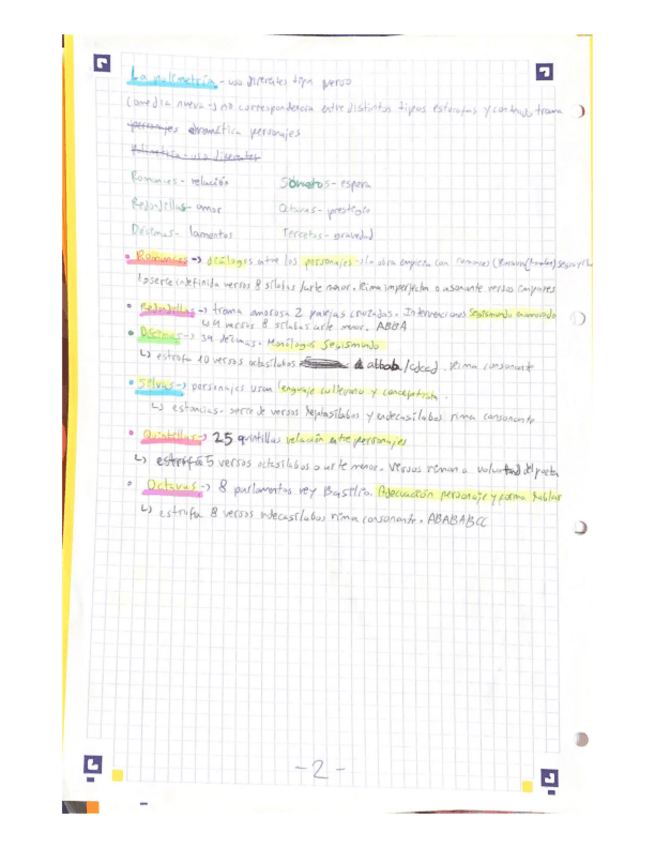 La polimetría - uso diferentes tipos verso
Comedia nueva → no correspondencia entre distintos tipos estrofas y contenido trama
personajes dramática personajes
Polimetría - uso diferentes
Romances - relación Sonetos - espera
Redondillas - amor Octavas - prestigio
Décimas - lamentos Tercetos - gravedad
• Romances → diálogos entre los personajes. La obra empieza con romances
↳ serie indefinida versos 8 sílabas /arte menor. Rima imperfecta o asonante versos impares
• Redondillas → trama amorosa 2 parejas cruzadas. Intervenciones Segismundo enamorado
↳ 4 versos 8 sílabas arte menor. ABBA
• Décimas → 39 décimas. Monólogos Segismundo
↳ estrofa 10 versos octosílabos abbab /cdccd. Rima consonante
• Silvas → personajes usan lenguaje culterano y conceptista.
↳ estancias - serie de versos heptasílabos y endecasílabos rima consonante
• Quintillas → 25 quintillas relación entre personajes
↳ estrofa 5 versos octosílabos o arte menor. Versos riman a voluntad del poeta
• Octavas → 8 parlamentos rey Basilio. Adecuación personaje y forma hablar
↳ estrofa 8 versos endecasílabos rima consonante. ABABABCC
- 2 -